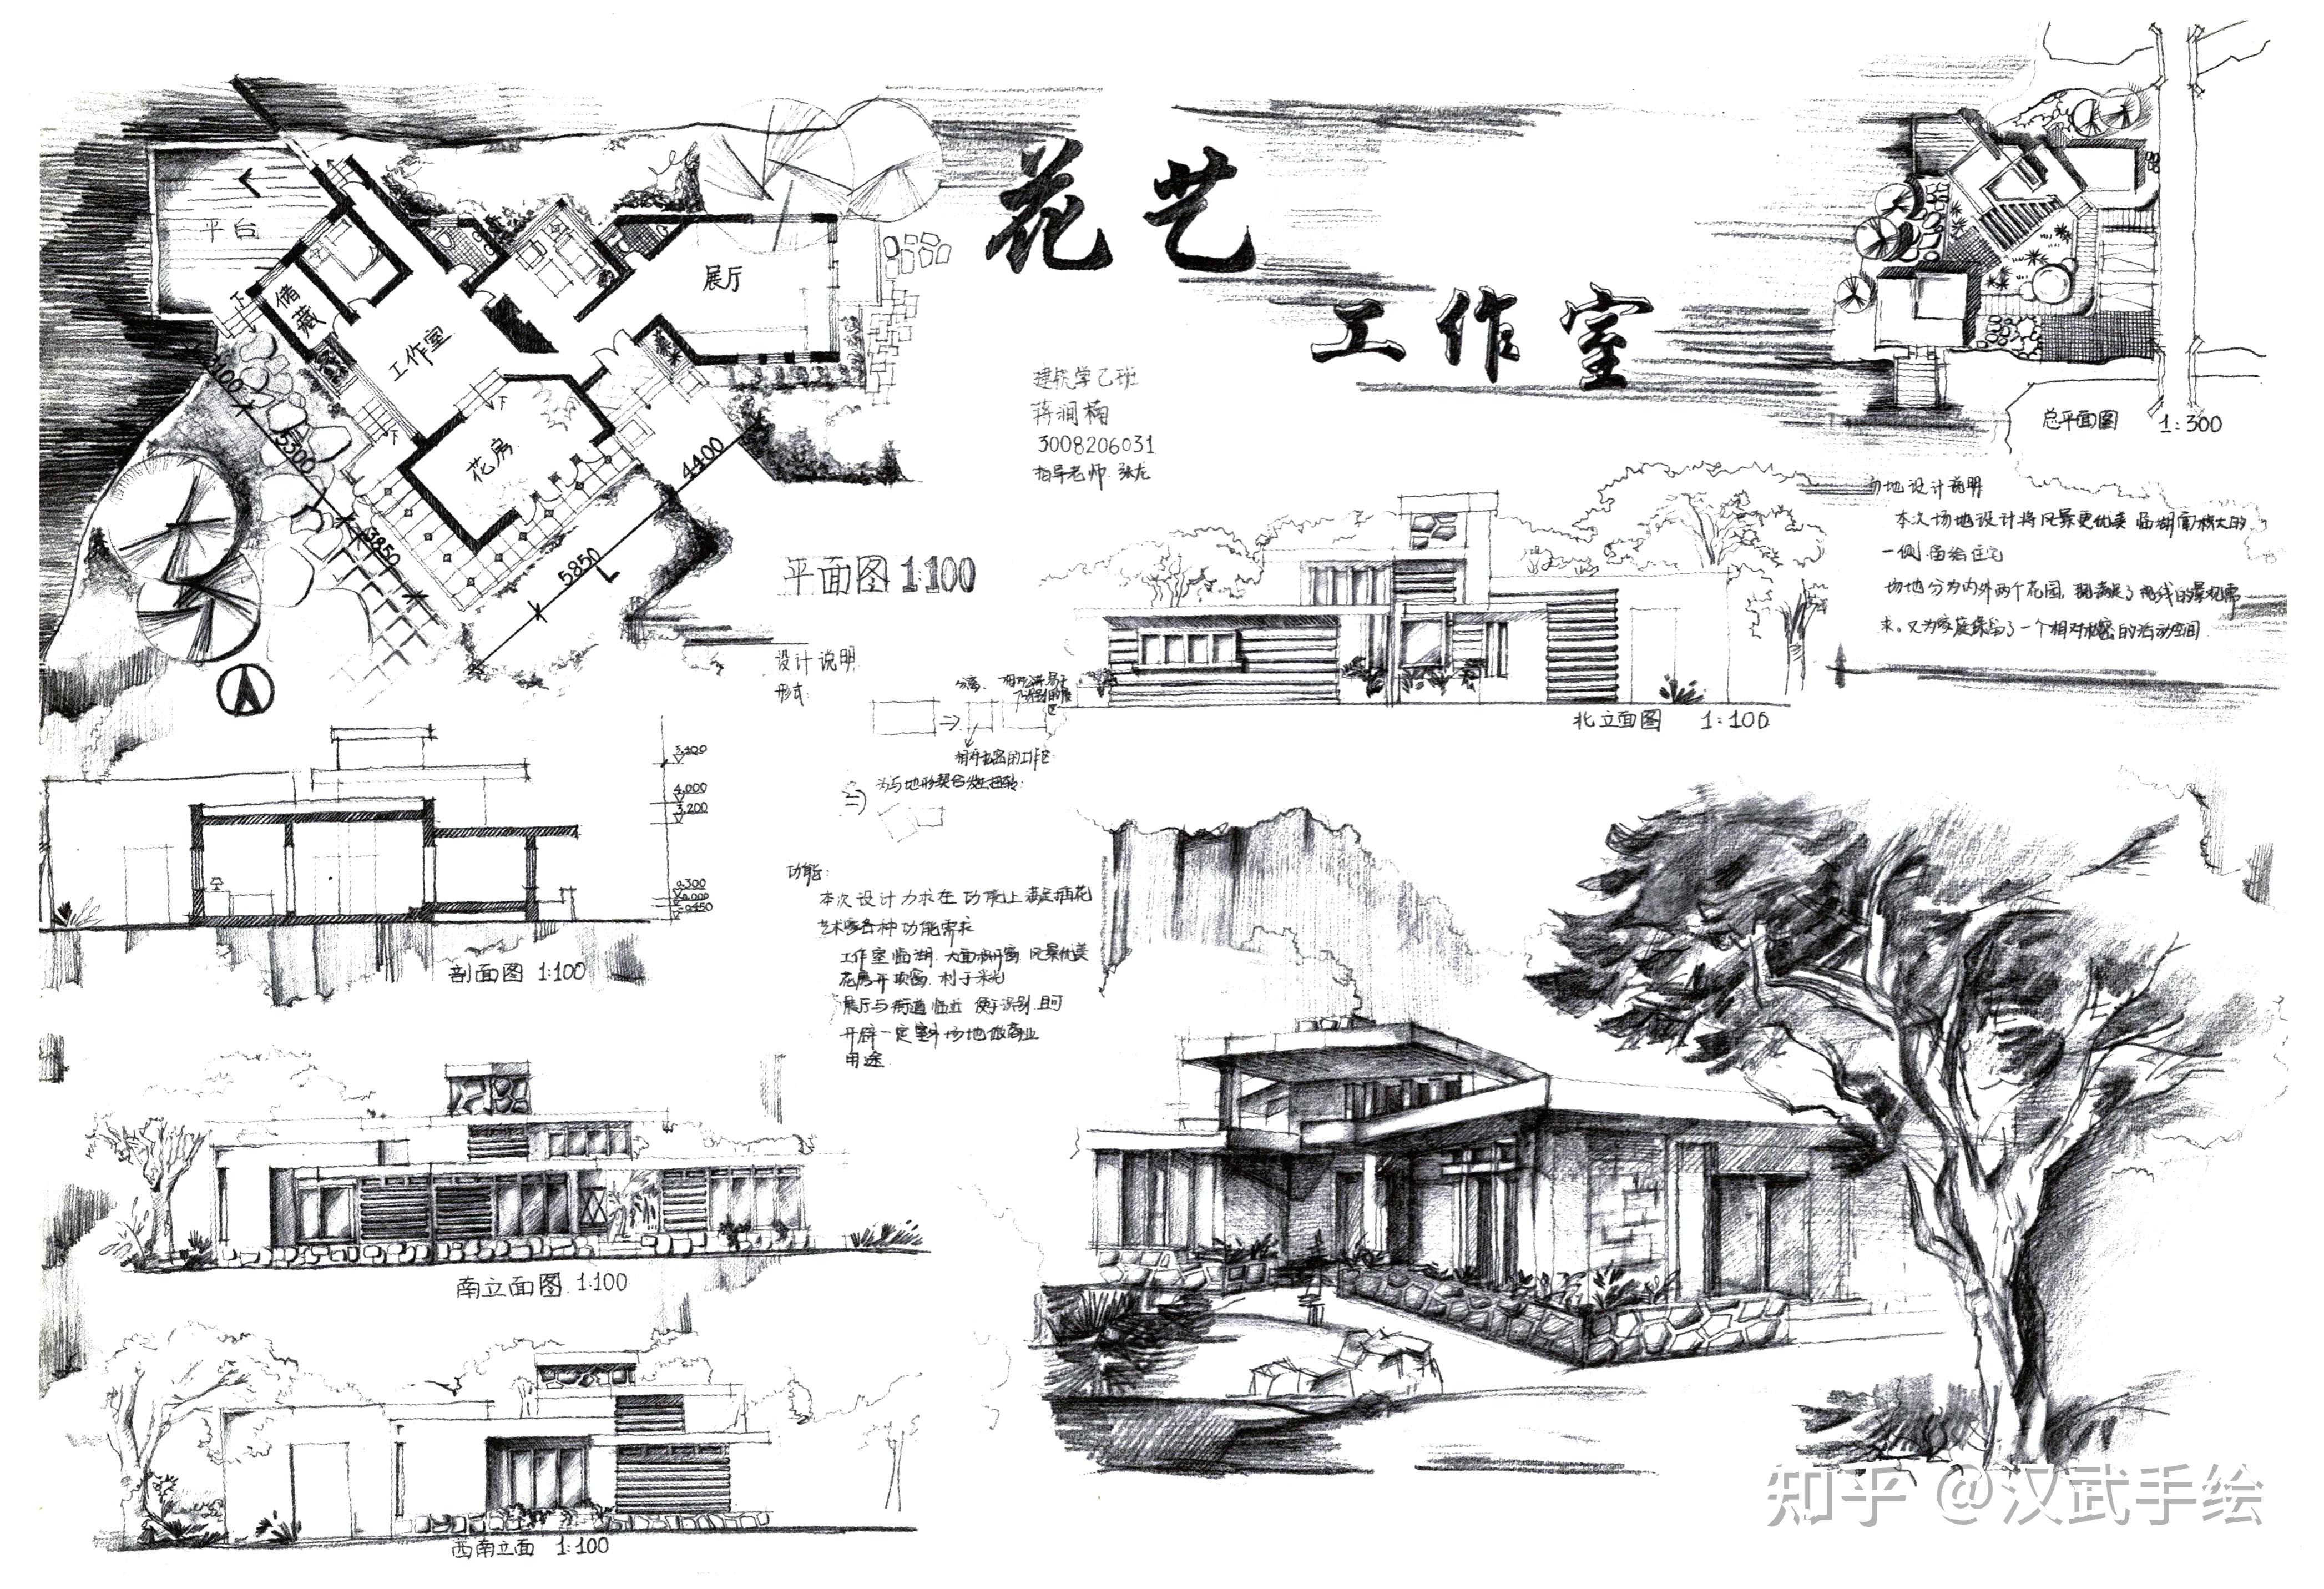 花艺
工作室
建筑学乙班
蒋润楠
3008206031
指导老师 张龙
平台
储藏
工作室
展厅
花房
下
下
下
3100
5300
3850
5850
4400
平面图 1:100
总平面图 1:300
场地设计说明
本次场地设计将风景更优美 临湖面较大的
一侧 留给住宅
场地分为内外两个花园, 既满足了视线的景观需
求。又为家庭保留了一个相对私密的活动空间
北立面图 1:100
设计说明
形式:
分离
相对私密的工作区
为与地形契合发生扭转
功能:
本次设计力求在功能上满足插花
艺术家各种功能需求
工作室临湖 大面积开窗 风景优美
花房开顶窗 利于采光
展厅与街道临近 便于识别 且可
开辟一定室外场地做商业
用途
4.000
3.200
0.300
±0.000
-0.450
剖面图 1:100
南立面图 1:100
西南立面 1:100
知乎 @汉武手绘